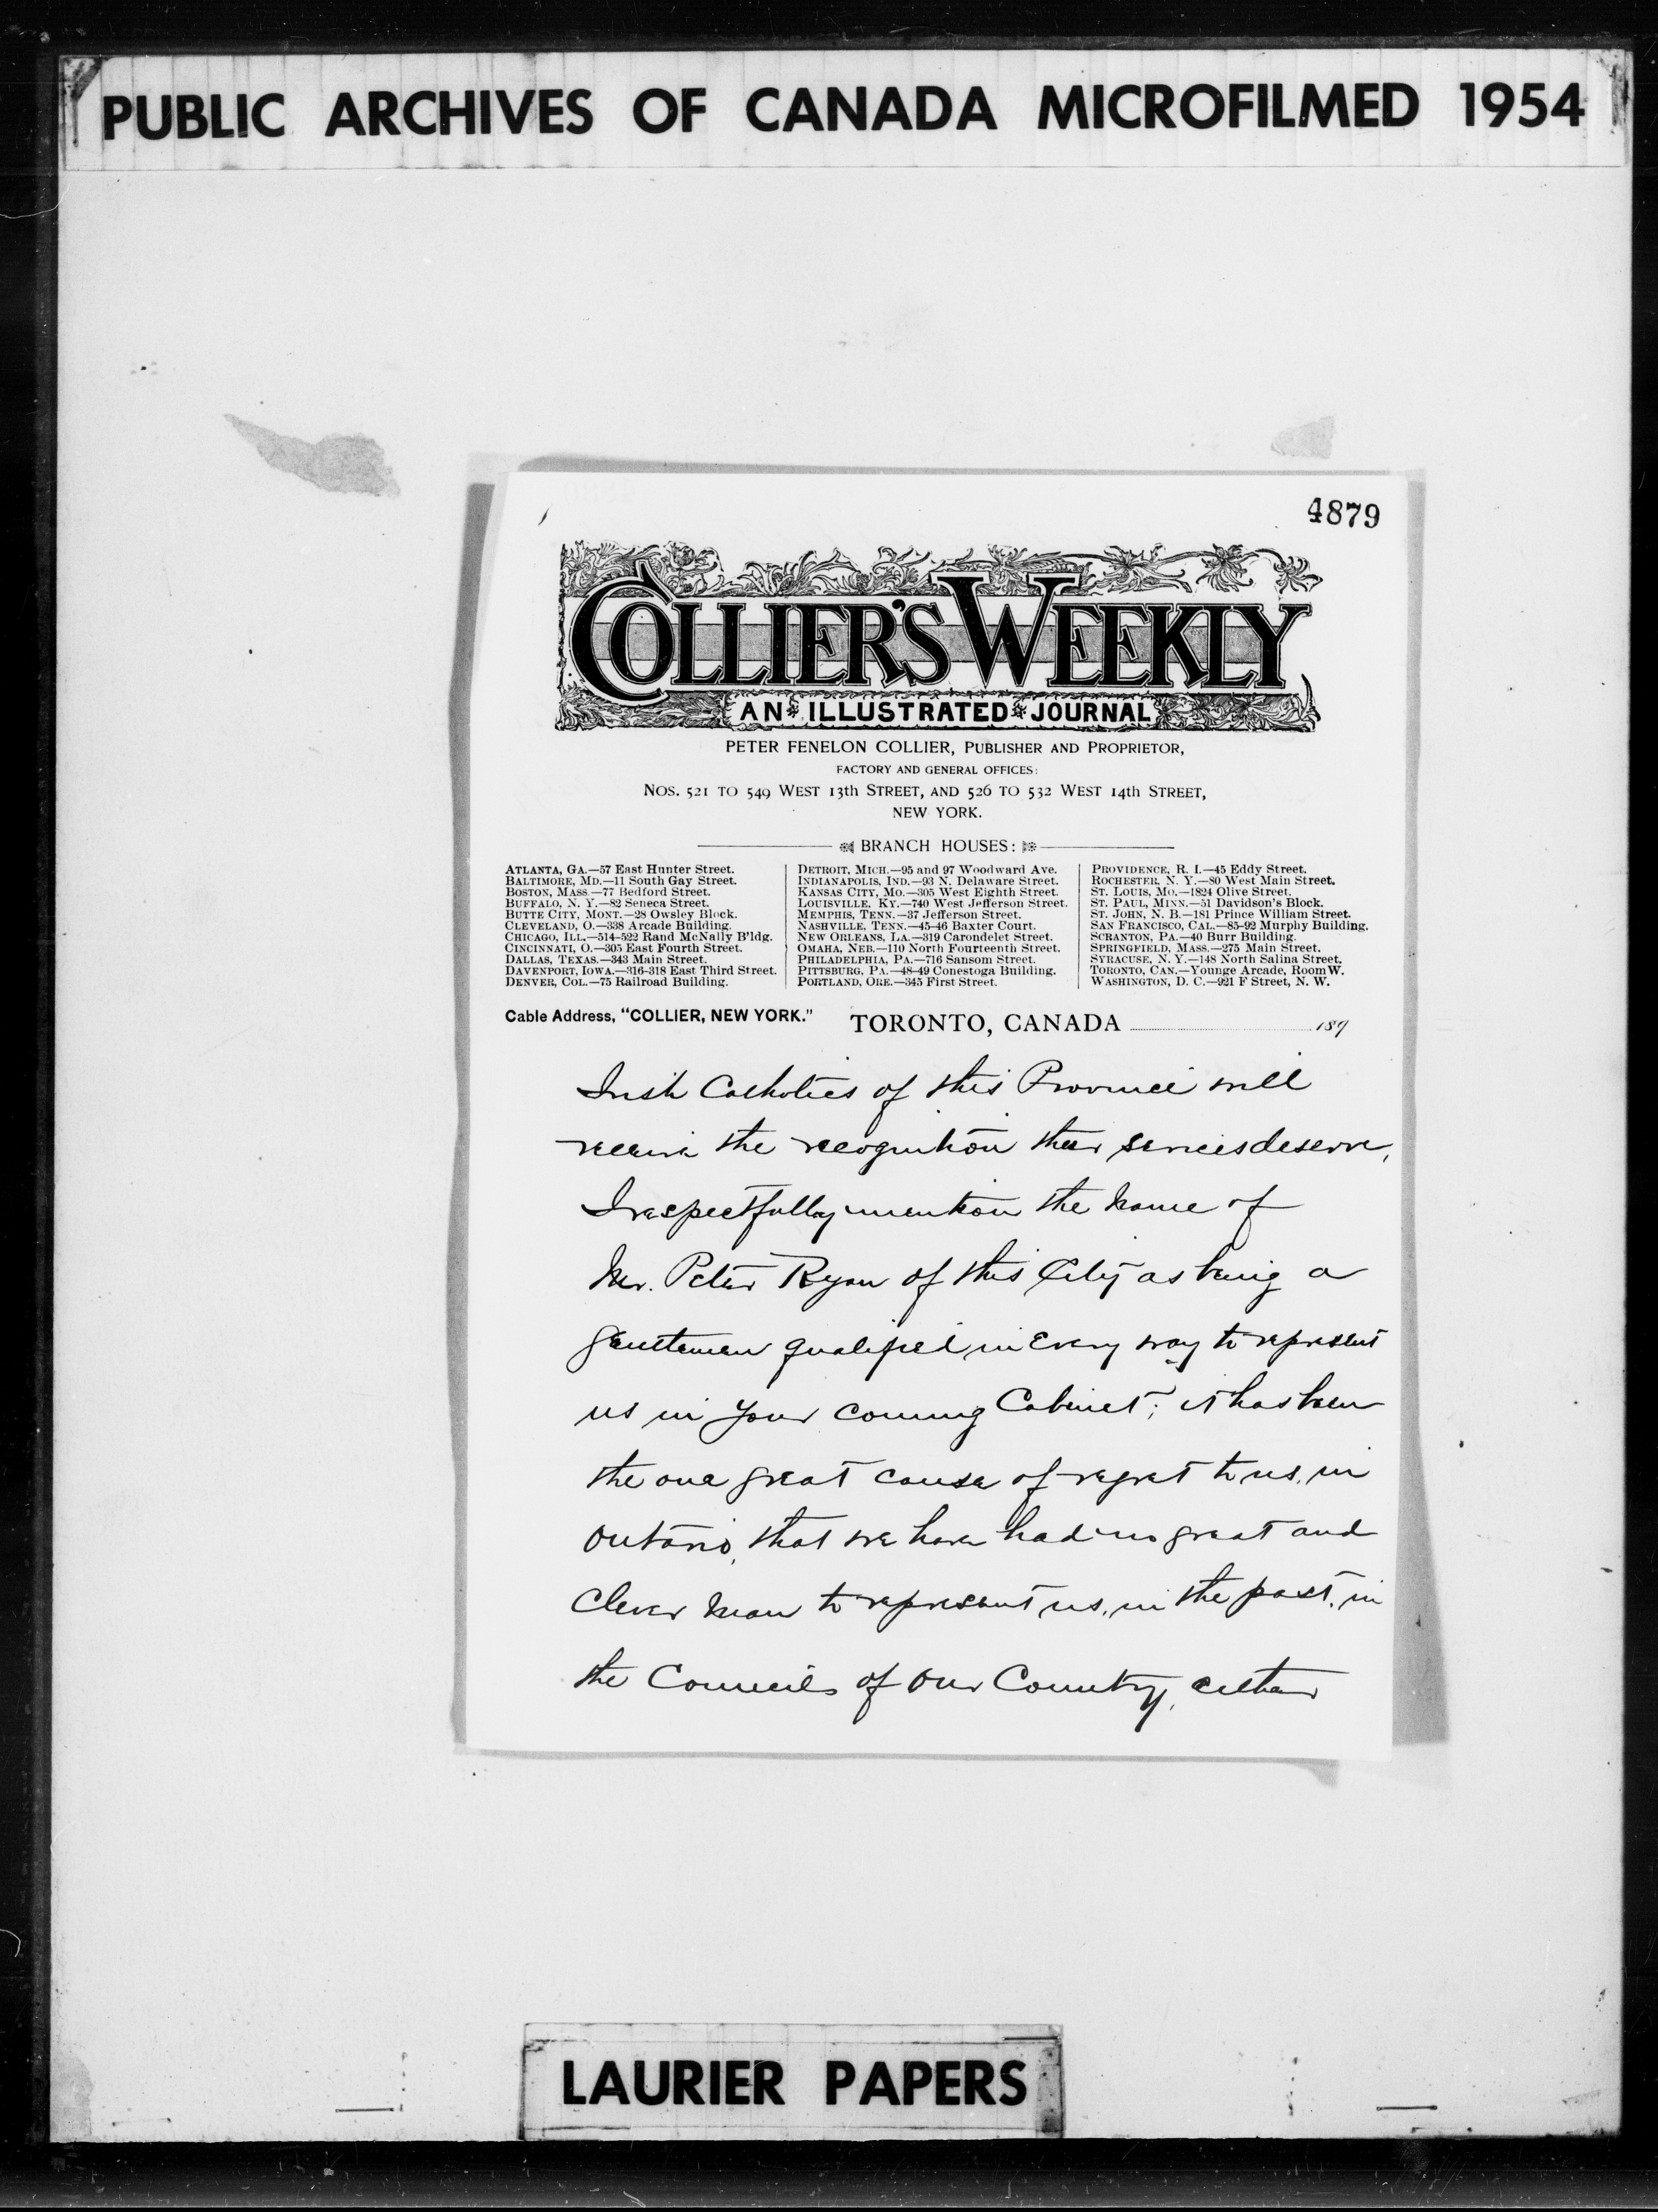 PUBLIC ARCHIVES OF CANADA MICROFILMED 1954
4879
COLLIER'S WEEKLY
AN ILLUSTRATED JOURNAL
PETER FENELON COLLIER, PUBLISHER AND PROPRIETOR,
FACTORY AND GENERAL OFFICES:
NOS. 521 TO 549 WEST 13th STREET, AND 526 TO 532 WEST 14th STREET,
NEW YORK.
BRANCH HOUSES:
ATLANTA, GA.—57 East Hunter Street.
BALTIMORE, MD.—11 South Gay Street.
BOSTON, MASS.—77 Bedford Street.
BUFFALO, N. Y.—82 Seneca Street.
BUTTE CITY, MONT.—28 Owsley Block.
CLEVELAND, O.—338 Arcade Building.
CHICAGO, ILL.—514-522 Rand McNally B'ldg.
CINCINNATI, O.—305 East Fourth Street.
DALLAS, TEXAS.—343 Main Street.
DAVENPORT, IOWA.—316-318 East Third Street.
DENVER, COL.—75 Railroad Building.
DETROIT, MICH.—95 and 97 Woodward Ave.
INDIANAPOLIS, IND.—93 N. Delaware Street.
KANSAS CITY, MO.—305 West Eighth Street.
LOUISVILLE, KY.—740 West Jefferson Street.
MEMPHIS, TENN.—37 Jefferson Street.
NASHVILLE, TENN.—45-46 Baxter Court.
NEW ORLEANS, LA.—319 Carondelet Street.
OMAHA, NEB.—110 North Fourteenth Street.
PHILADELPHIA, PA.—716 Sansom Street.
PITTSBURG, PA.—48-49 Conestoga Building.
PORTLAND, ORE.—345 First Street.
PROVIDENCE, R. I.—45 Eddy Street.
ROCHESTER, N. Y.—80 West Main Street.
ST. LOUIS, MO.—1824 Olive Street.
ST. PAUL, MINN.—51 Davidson's Block.
ST. JOHN, N. B.—181 Prince William Street.
SAN FRANCISCO, CAL.—85-92 Murphy Building.
SCRANTON, PA.—40 Burr Building.
SPRINGFIELD, MASS.—275 Main Street.
SYRACUSE, N. Y.—148 North Salina Street.
TORONTO, CAN.—Younge Arcade, Room W.
WASHINGTON, D. C.—921 F Street, N. W.
Cable Address, "COLLIER, NEW YORK."
TORONTO, CANADA 189
Irish Catholics of this Province will
receive the recognition their services deserve,
I respectfully mention the name of
Mr. Peter Ryan of this City as being a
gentleman qualified in Every way to represent
us in your coming Cabinet; it has been
the one great cause of regret to us, in
Ontario, that we have had no great and
Clever man to represent us, in the past, in
the Councils of our Country, either
LAURIER PAPERS